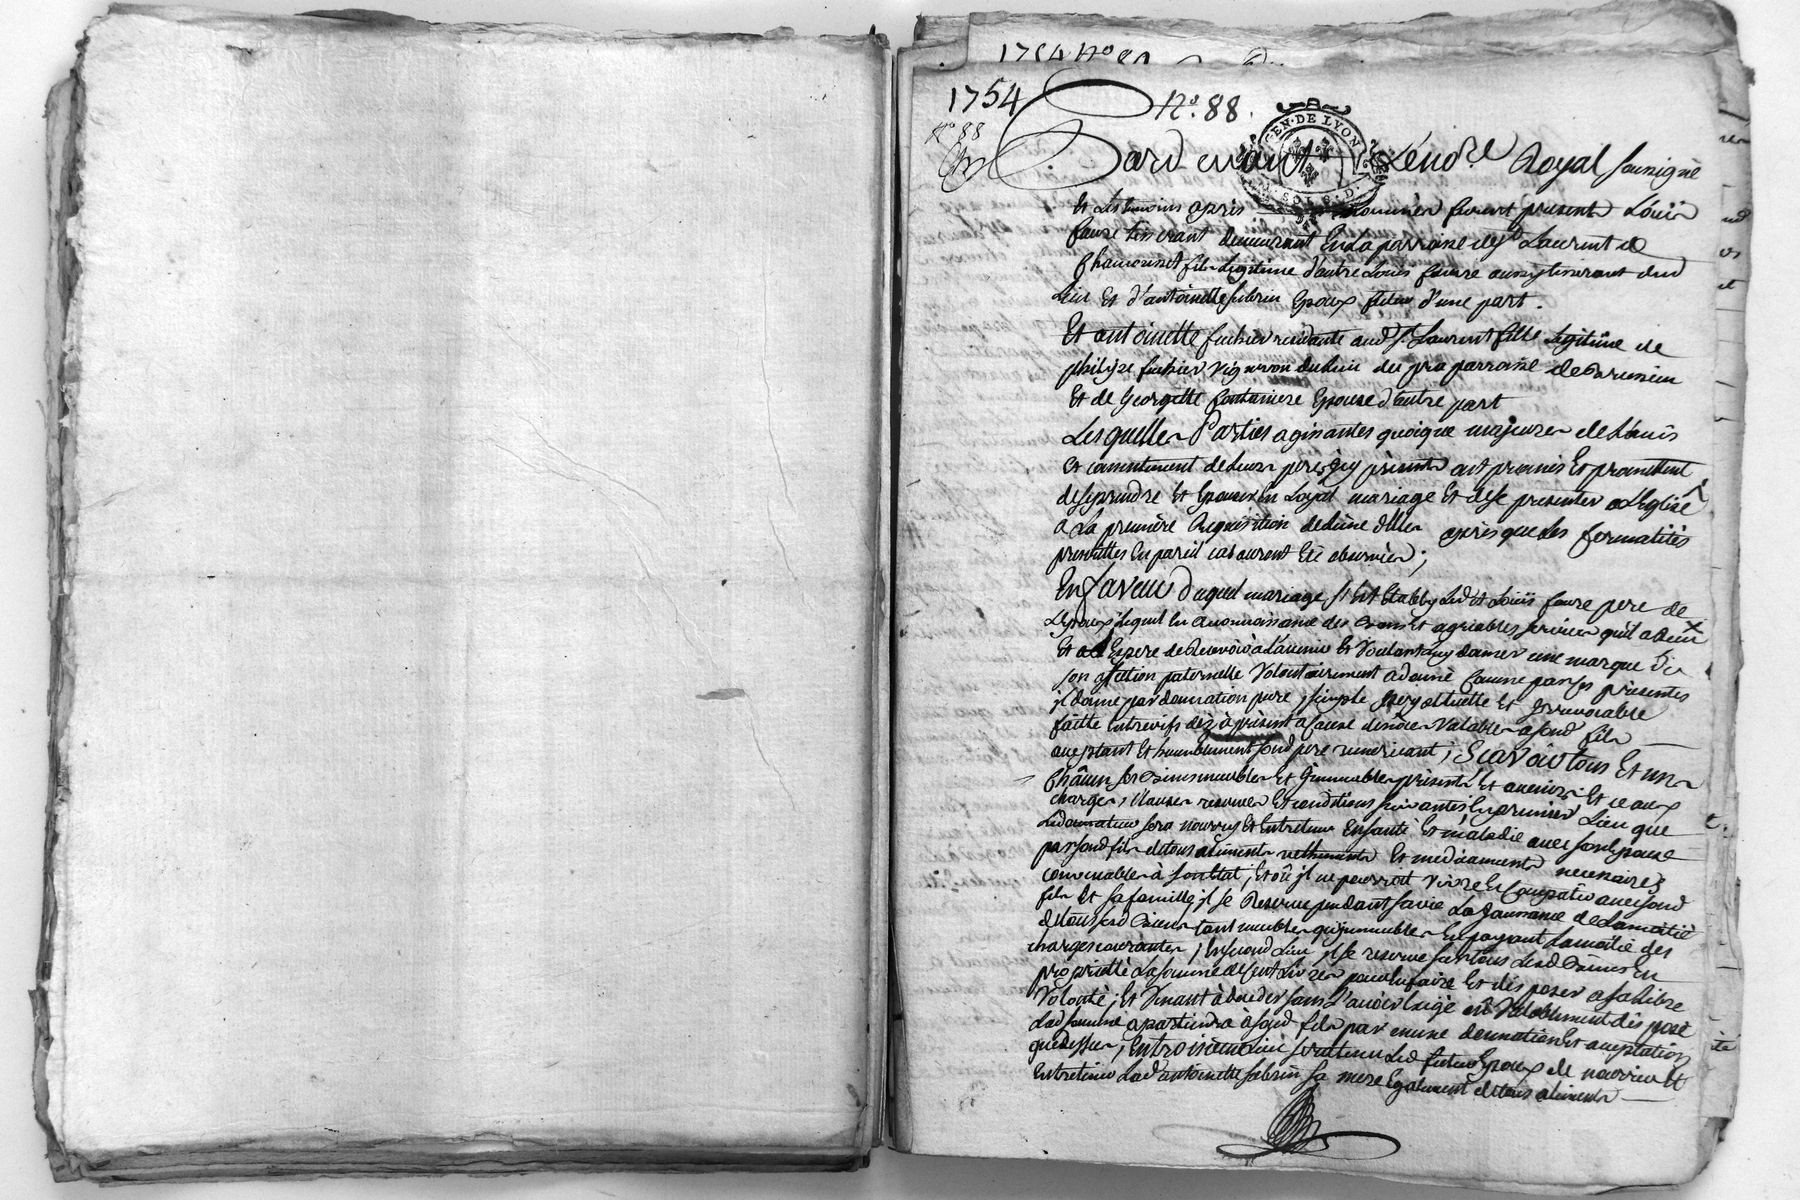 1754 No 80
1754 No. 88.
No 88
Pardevant Lenore Royal soussigné
Et les temoins apres nommes furent presents Loüis
faure tisserant demeurant En la parroisse de St Laurent de
Chamousset fils Legitime d'autre Louis faure aussy tisserant dud
Lieu Et d'antoinette sabrin Epoux futur d'une part.
Et antoinette fuchier residante aud St Laurent fille Legitime de
philipe fuchier vigneron du lieu de parroisse de
Et de Georgette fontaniere Epouse d'autre part
Lesquelles Parties agissantes quoique majeures de L'auis
Et consentement de Leurs peres icy presents ont promis Et promettent
de se prendre Et Epouser En Loyal mariage Et de se presenter a L'Eglise
a La premiere Requisition de L'une d'Elles apres que Les formalités
prescrittes En pareil cas auront Eté observées;
En faveur duquel mariage s'est Etably Led. Loüis faure pere de
L'Epoux Lequel En reconnoissance des bons Et agreables services qu'il a
Et Espere de Recevoir a L'avenir Et Voulant luy donner une marque de
son affection paternelle Volontairement a donné comme par ces presentes
il donne par donnation pure, simple perpetuelle Et Irrevocable
faitte Entrevifs dez à present a cause de nôce Valable a sond fils
acceptant Et humblement sond pere remerciant; Scavoir tous Et un
Châcun ses Biens meubles Et Immeubles presents Et avenirs Et ce aux
charges, clauses reserves Et conditions suivantes En premier Lieu que
Led donateur sera nourry Et Entretenu En santé Et maladie avec son Epouse
par sond fils de tous aliments vettements Et medicaments necessaires
convenables à son Etat; Et où il ne pourroit vivre En Compatie avec sond
fils Et sa famille; il se Reserve pendant sa vie La Joüissance de La moitié
de tous sesd Biens tant meubles qu'immeubles En payant La moitié des
charges courantes; En second Lieu il se reserve sur tous Lesd Biens En
proprietté La somme de cent Livres pour En faire Et disposer a sa Libre
Volonté; Et Venant à deceder sans L'avoir Exigé ni Valablement disposé
Lad somme apartiendra à sond fils par mesme donnation Et acceptation
que dessus; En troisieme Lieu sera tenu Led futur Epoux de nourrir Et
Entretenir Lad antoinette sabrin sa mere Egalement de tous aliments